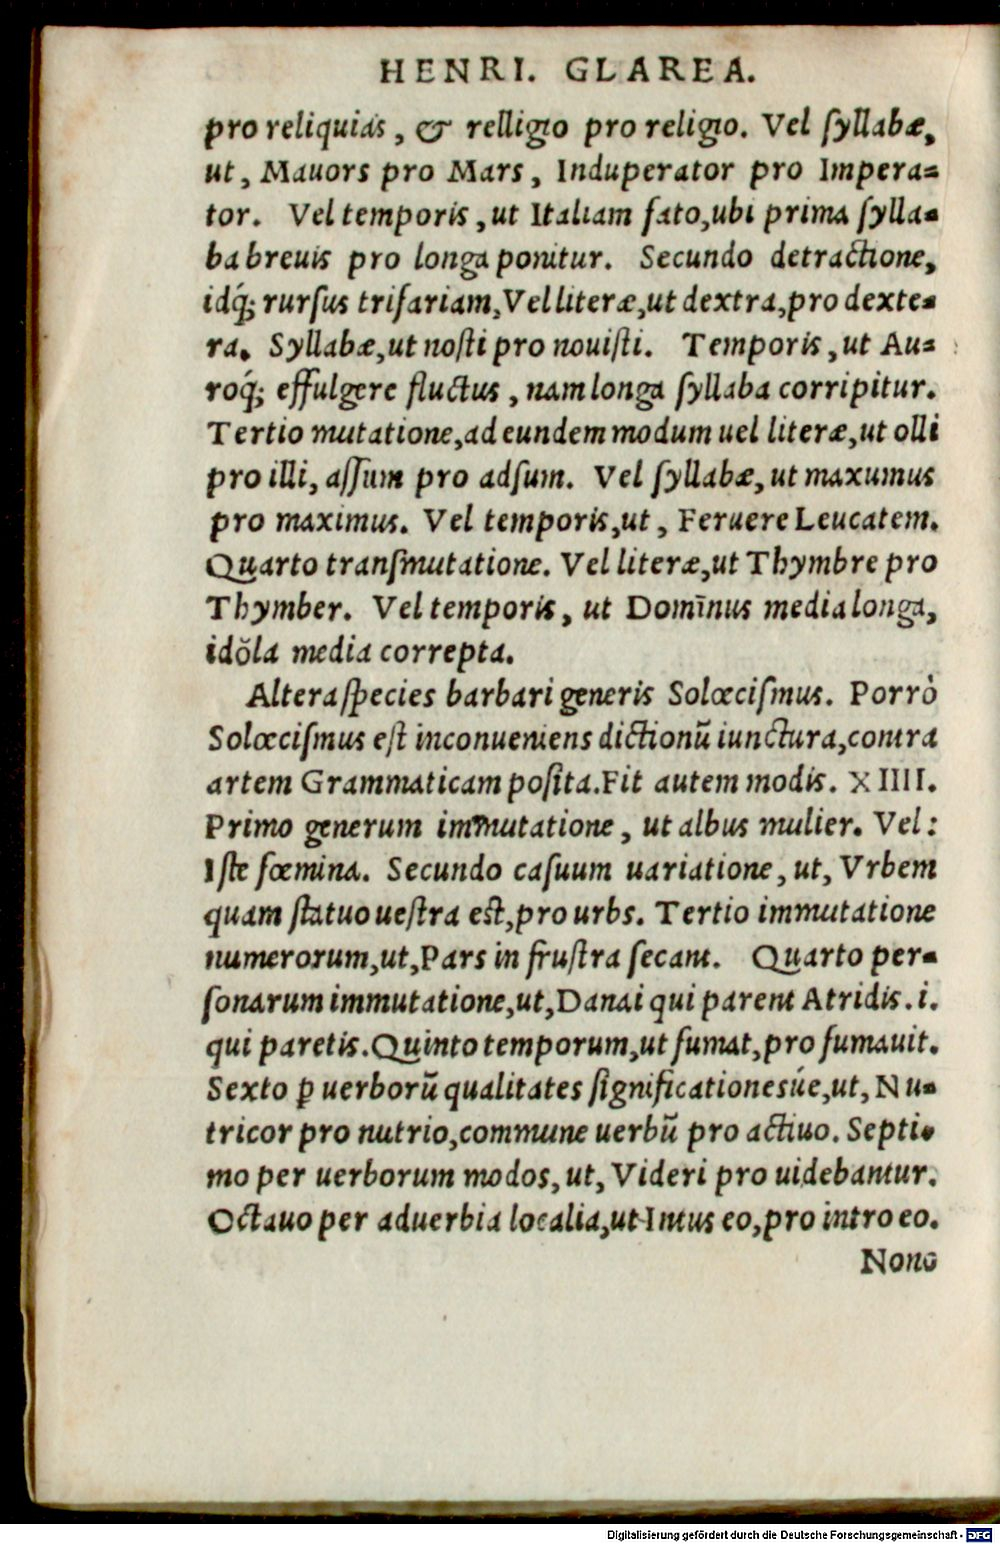 HENRI. GLAREA.
pro reliquiás, & relligio pro religio. Vel ſyllabæ,
ut, Mauors pro Mars, Induperator pro Impera=
tor. Vel temporis, ut Italiam fato, ubi prima ſylla=
ba breuis pro longa ponitur. Secundo detractione,
idq́; rurſus trifariam, Vel literæ, ut dextra, pro dexte=
ra. Syllabæ, ut noſti pro nouiſti. Temporis, ut Au=
roq́; effulgere fluctus, nam longa ſyllaba corripitur.
Tertio mutatione, ad eundem modum uel literæ, ut olli
pro illi, aſſum pro adſum. Vel ſyllabæ, ut maxumus
pro maximus. Vel temporis, ut, Feruere Leucatem.
Quarto tranſmutatione. Vel literæ, ut Thymbre pro
Thymber. Vel temporis, ut Domīnus media longa,
idŏla media correpta.
Altera ſpecies barbari generis Solœciſmus. Porrò
Solœciſmus eſt inconueniens dictionũ iunctura, contra
artem Grammaticam poſita. Fit autem modis. XIIII.
Primo generum immutatione, ut albus mulier. Vel:
Iſte fœmina. Secundo caſuum uariatione, ut, Vrbem
quam ſtatuo ueſtra eſt, pro urbs. Tertio immutatione
numerorum, ut, Pars in fruſtra ſecant. Quarto per=
ſonarum immutatione, ut, Danai qui parent Atridis. i.
qui paretis. Quinto temporum, ut fumat, pro fumauit.
Sexto ꝑ uerborũ qualitates ſignificationesúe, ut, Nu=
tricor pro nutrio, commune uerbũ pro actiuo. Septi=
mo per uerborum modos, ut, Videri pro uidebantur.
Octauo per aduerbia localia, ut Intus eo, pro intro eo.
Nono
Digitalisierung gefördert durch die Deutsche Forschungsgemeinschaft - DFG